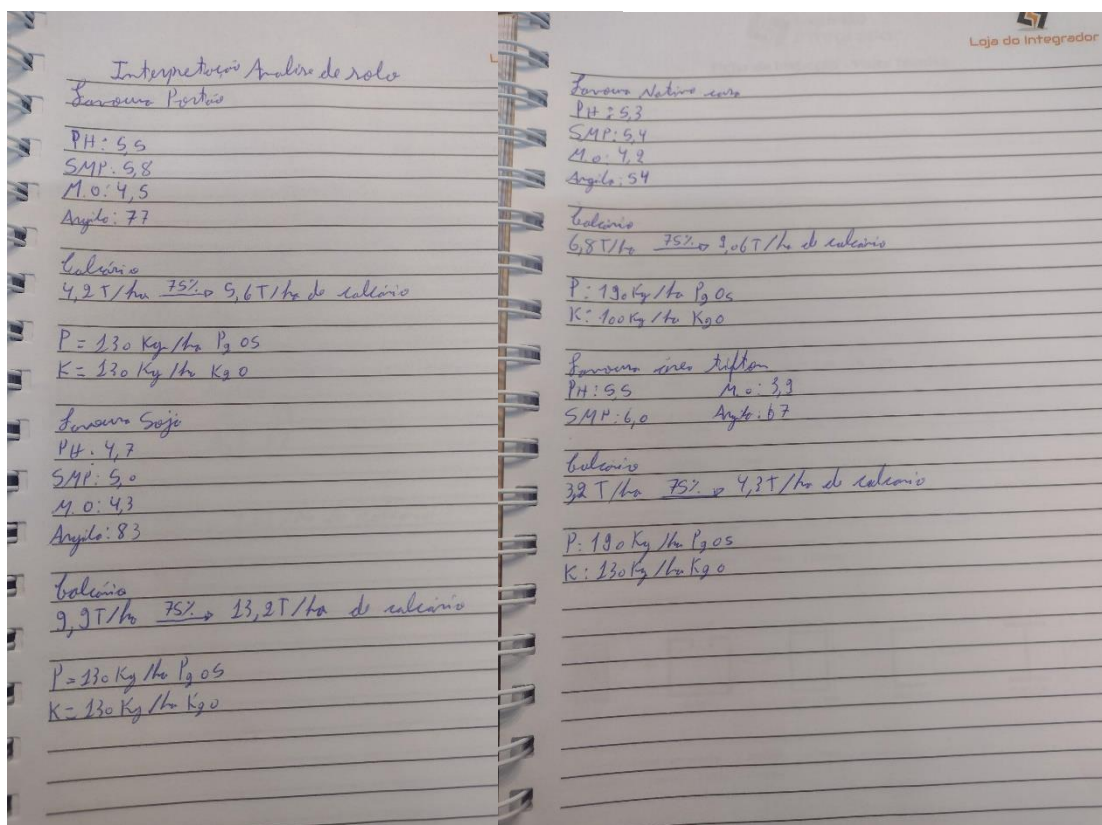 Interpretação Analise de solo
Lavoura Portão
PH: 5,5
SMP: 5,8
M.O: 4,5
Argila: 77
Calcário
4,2 T/ha 75% → 5,6 T/ha de calcário
P = 130 Kg/ha P2O5
K = 130 Kg/ha K2O
Lavoura Soja
PH: 4,7
SMP: 5,0
M.O: 4,3
Argila: 83
Calcário
9,9 T/ha 75% → 13,2 T/ha de calcário
P = 130 Kg/ha P2O5
K = 130 Kg/ha K2O
Loja do Integrador
Lavoura Nativo casa
PH: 5,3
SMP: 5,4
M.O: 4,2
Argila: 54
Calcário
6,8 T/ha 75% → 9,06 T/ha de calcário
P: 190 Kg/ha P2O5
K: 100 Kg/ha K2O
Lavoura área tifton
PH: 5,5 M.O: 3,9
SMP: 6,0 Argila: 67
Calcário
3,2 T/ha 75% → 4,3 T/ha de calcário
P: 190 Kg/ha P2O5
K: 130 Kg/ha K2O